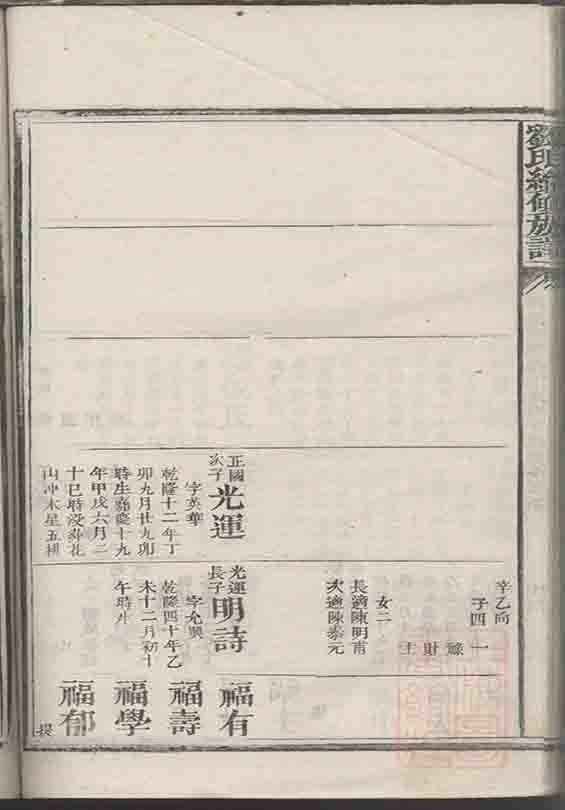 辛乙向
子四
一
女二
長適陳明甫
次適陳泰元
正國
次子
光運
字英華
乾隆十二年丁
卯九月廿九卯
時生嘉慶十九
年甲戌六月二
十巳時沒葬花
山冲木星五樹
光運
長子
明詩
字允興
乾隆四十年乙
未十二月初十
午時生
福有
福壽
福學
福郁